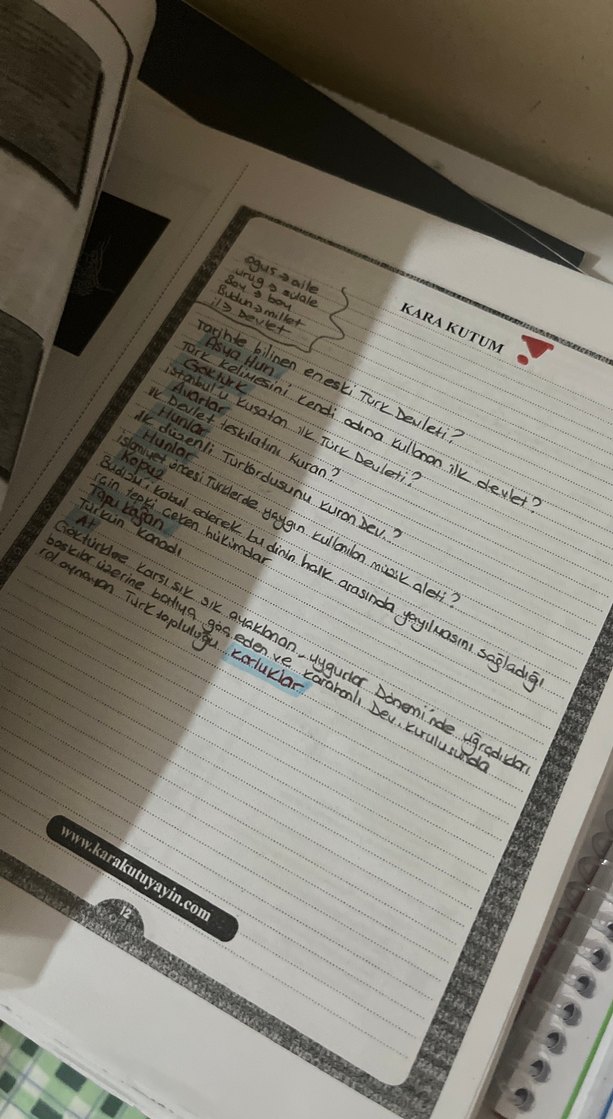 KARA KUTUM
oguş → aile
urug → sülale
Boy → boy
Budun → millet
il → Devlet
Tarihte bilinen en eski Türk Devleti?
Asya Hun
Türk kelimesini kendi adına kullanan ilk devlet?
Göktürk
istanbul'u kuşatan ilk Türk Devleti?
Avarlar
ilk Devlet teşkilatını kuran?
Hunlar
ilk düzenli Türk ordusunu kuran Dev.?
Hunlar
islamiyet öncesi Türklerde yaygın kullanılan müzik aleti?
Kopuz
Budizm'i kabul ederek bu dinin halk arasında yayılmasını sağladığı
için tepki çeken hükümdar
Tapu kağan
Türkün kanadı
At
Göktürklere karşı sık sık ayaklanan, uygurlar Dönemi'nde uğradıkları
baskılar üzerine batıya göç eden ve Karahanlı Dev. kuruluşunda
rol oynayan Türk topluluğu Karluklar
www.karakutuyayin.com
12